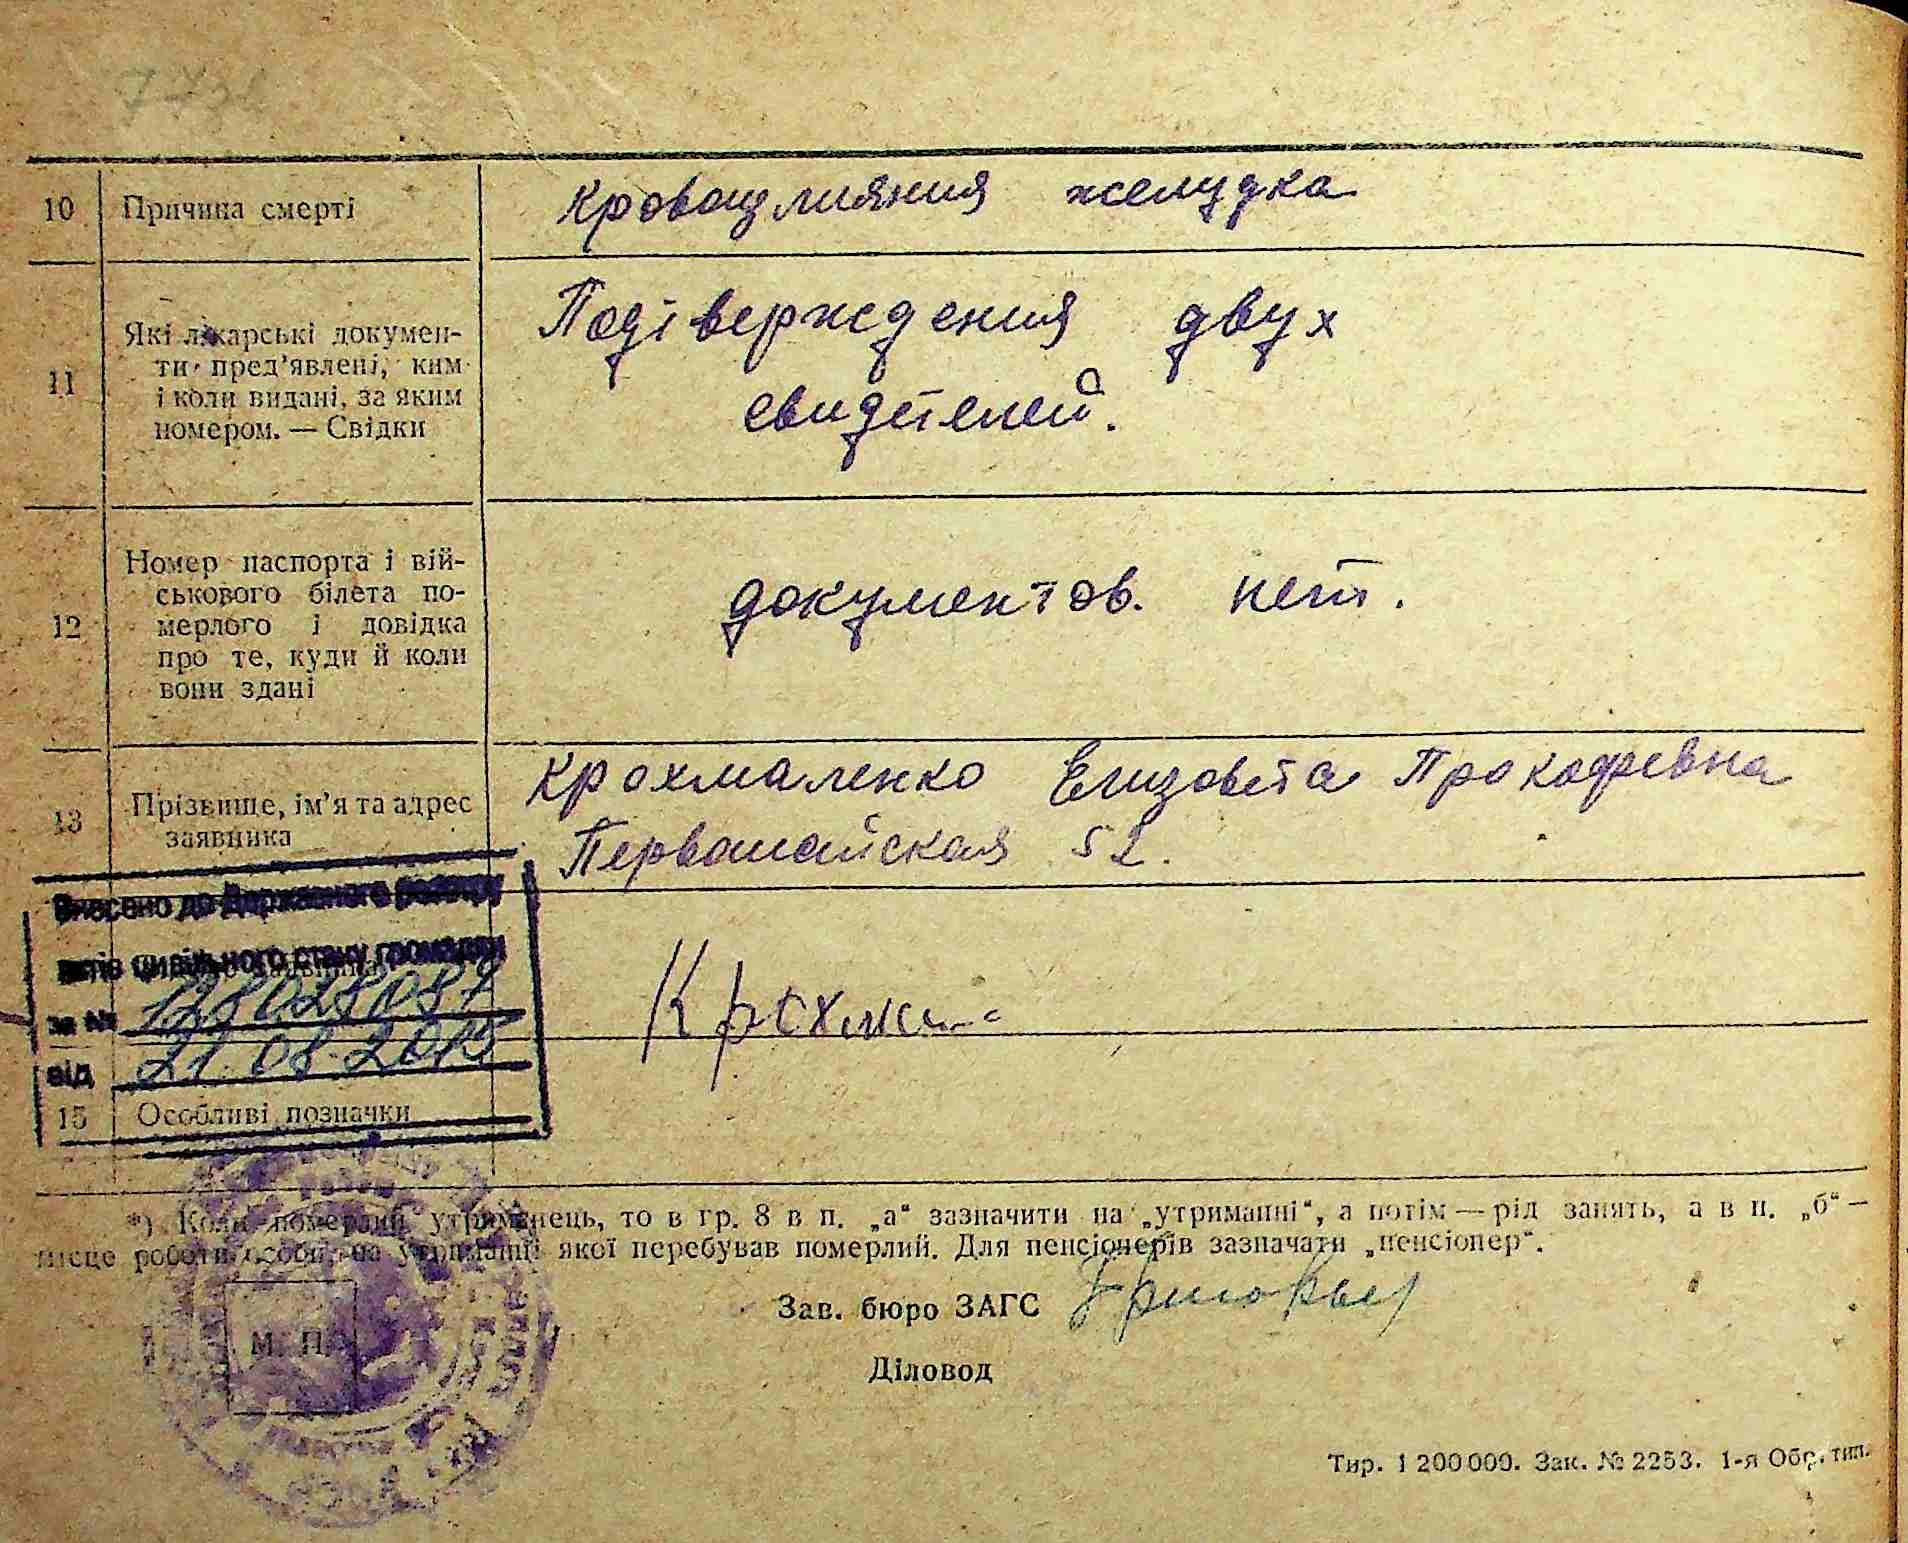 10 Причина смерті Кровоизлияния желудка
11 Які лікарські докумен-
ти пред'явлені, ким
і коли видані, за яким
номером. — Свідки
Подтверждения двух
свидетелей.
12 Номер паспорта і вій-
ськового білета по-
мерлого і довідка
про те, куди й коли
вони здані
документов. нет.
13 Прізвище, ім'я та адрес
заявника
Крохмаленко Елизовета Прокофевна
Первомайская 52.
Внесено до Державного реєстру
актів цивільного стану громадян
за №
від 21.08.2015
Крохма
15 Особливі позначки
*) Коли померлий утриманець, то в гр. 8 в п. „а“ зазначити на „утриманні“, а потім — рід занять, а в п. „б“ —
місце роботи особи, на утриманні якої перебував померлий. Для пенсіонерів зазначати „пенсіонер“.
Зав. бюро ЗАГС
М. П.
Діловод
Тир. 1 200 000. Зак. № 2253. 1-я Обр. тип.